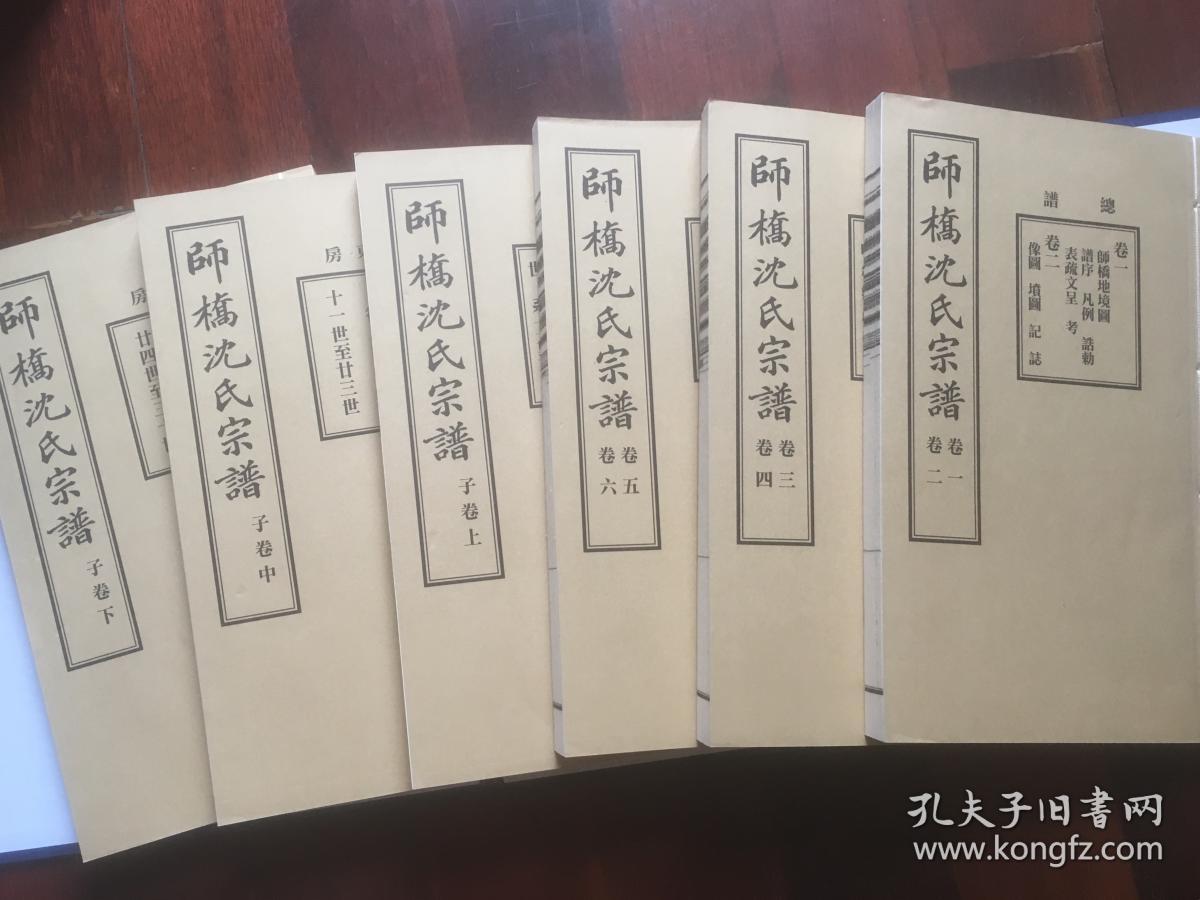 師橋沈氏宗譜
卷一
卷二
總譜
卷一
師橋地境圖
譜序 凡例 誥勅
表疏文呈 考
卷二
像圖 墳圖 記 誌
師橋沈氏宗譜
卷三
卷四
師橋沈氏宗譜
卷五
卷六
師橋沈氏宗譜
子卷上
世
師橋沈氏宗譜
子卷中
房
十一世至廿三世
師橋沈氏宗譜
子卷下
房
廿四世至三
孔夫子旧書网
www.kongfz.com